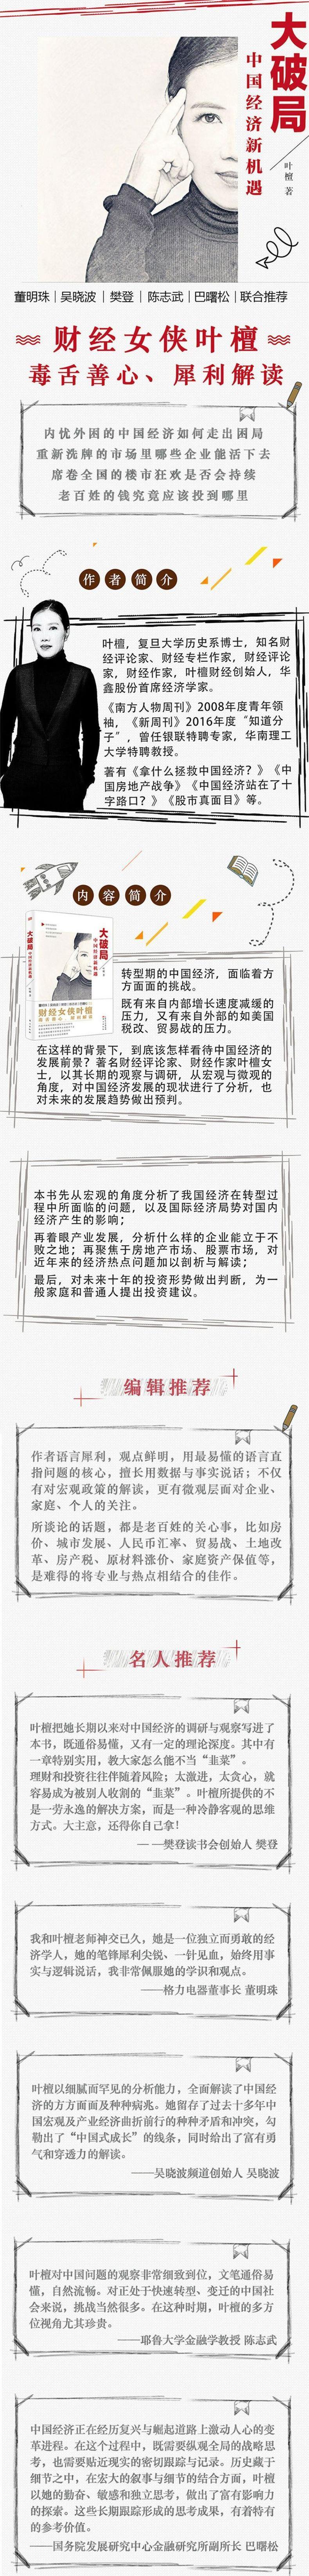 大破局
中国经济新机遇
叶檀 著
董明珠｜吴晓波｜樊登｜陈志武｜巴曙松｜联合推荐
财经女侠叶檀
毒舌善心、犀利解读
内忧外困的中国经济如何走出困局
重新洗牌的市场里哪些企业能活下去
席卷全国的楼市狂欢是否会持续
老百姓的钱究竟应该投到哪里
作者简介
叶檀，复旦大学历史系博士，知名财
经评论家、财经专栏作家，财经评论
家，财经作家，叶檀财经创始人，华
鑫股份首席经济学家。
《南方人物周刊》2008年度青年领
袖，《新周刊》2016年度“知道分
子”，曾任银联特聘专家，华南理工
大学特聘教授。
著有《拿什么拯救中国经济？》《中
国房地产战争》《中国经济站在了十
字路口？》《股市真面目》等。
内容简介
大破局
中国经济新机遇
财经女侠叶檀
转型期的中国经济，面临着方
方面面的挑战。
既有来自内部增长速度减缓的
压力，又有来自外部的如美国
税改、贸易战的压力。
在这样的背景下，到底该怎样看待中国经济的
发展前景？著名财经评论家、财经作家叶檀女
士，以其长期的观察与调研，从宏观与微观的
角度，对中国经济发展的现状进行了分析，也
对未来的发展趋势做出预判。
本书先从宏观的角度分析了我国经济在转型过
程中所面临的问题，以及国际经济局势对国内
经济产生的影响；
再着眼产业发展，分析什么样的企业能立于不
败之地；再聚焦于房地产市场、股票市场，对
近年来的经济热点问题加以剖析与解读；
最后，对未来十年的投资形势做出判断，为一
般家庭和普通人提出投资建议。
编辑推荐
作者语言犀利，观点鲜明，用最易懂的语言直
指问题的核心，擅长用数据与事实说话；不仅
有对宏观政策的解读，更有微观层面对企业、
家庭、个人的关注。
所谈论的话题，都是老百姓的关心事，比如房
价、城市发展、人民币汇率、贸易战、土地改
革、房产税、原材料涨价、家庭资产保值等，
是难得的将专业与热点相结合的佳作。
名人推荐
叶檀把她长期以来对中国经济的调研与观察写进了
本书，既通俗易懂，又有一定的理论深度。其中有
一章特别实用，教大家怎么能不当“韭菜”。
理财和投资往往伴随着风险；太激进，太贪心，就
容易成为被别人收割的“韭菜”。叶檀所提供的不
是一劳永逸的解决方案，而是一种冷静客观的思维
方式。大主意，还得你自己拿！
— —樊登读书会创始人 樊登
我和叶檀老师神交已久，她是一位独立而勇敢的经
济学人，她的笔锋犀利尖锐、一针见血，始终用事
实与逻辑说话，我非常佩服她的学识和观点。
——格力电器董事长 董明珠
叶檀以细腻而罕见的分析能力，全面解读了中国经
济的方方面面及种种病兆。她留存了过去十多年中
国宏观及产业经济曲折前行的种种矛盾和冲突，勾
勒出了“中国式成长”的线条，同时给出了富有勇
气和穿透力的解读。
——吴晓波频道创始人 吴晓波
叶檀对中国问题的观察非常细致到位，文笔通俗易
懂，自然流畅。对正处于快速转型、变迁的中国社
会来说，挑战当然很多。在这种时期，叶檀的多方
位视角尤其珍贵。
——耶鲁大学金融学教授 陈志武
中国经济正在经历复兴与崛起道路上激动人心的变
革进程。在这个过程中，既需要纵观全局的战略思
考，也需要贴近现实的密切跟踪与记录。历史藏于
细节之中，在宏大的叙事与细节的结合方面，叶檀
以她的勤奋、敏感和独立思考，做出了富有影响力
的探索。这些长期跟踪形成的思考成果，有着特有
的参考价值。
——国务院发展研究中心金融研究所副所长 巴曙松